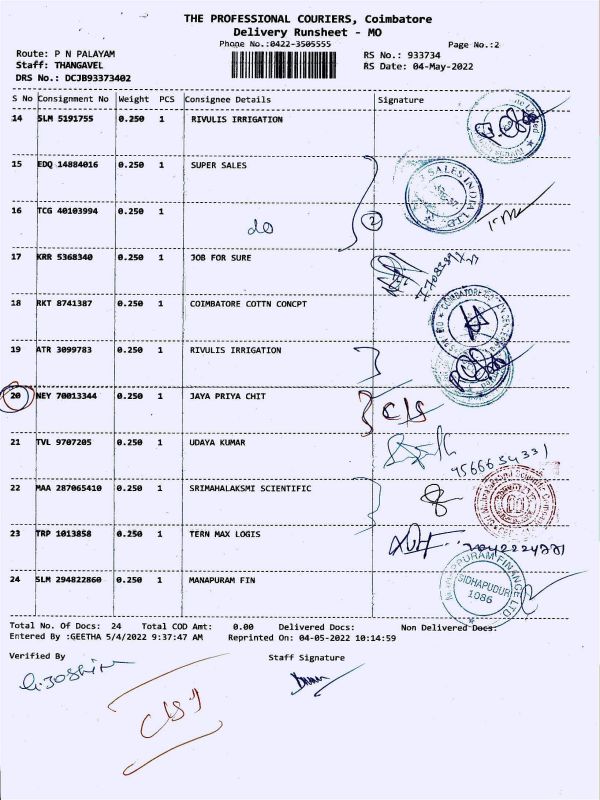 THE PROFESSIONAL COURIERS, Coimbatore
Delivery Runsheet - MO
Phone No.:0422-3505555 Page No.:2
Route: P N PALAYAM RS No.: 933734
Staff: THANGAVEL RS Date: 04-May-2022
DRS No.: DCJB93373402
S No Consignment No Weight PCS Consignee Details Signature
14 SLM 5191755 0.250 1 RIVULIS IRRIGATION
15 EDQ 14884016 0.250 1 SUPER SALES
SALES INDIA LTD
16 TCG 40103994 0.250 1 do 2
17 KRR 5368340 0.250 1 JOB FOR SURE
18 RKT 8741387 0.250 1 COIMBATORE COTTN CONCPT
19 ATR 3099783 0.250 1 RIVULIS IRRIGATION
20 NEY 70013344 0.250 1 JAYA PRIYA CHIT C/S
21 TVL 9707205 0.250 1 UDAYA KUMAR
9566654331
22 MAA 287065410 0.250 1 SRIMAHALAKSMI SCIENTIFIC
23 TRP 1013858 0.250 1 TERN MAX LOGIS
24 SLM 294822860 0.250 1 MANAPURAM FIN
MANAPPURAM FINANCE LTD
SIDHAPUDUR
1086
Total No. Of Docs: 24 Total COD Amt: 0.00 Delivered Docs: Non Delivered Docs:
Entered By :GEETHA 5/4/2022 9:37:47 AM Reprinted On: 04-05-2022 10:14:59
Verified By Staff Signature